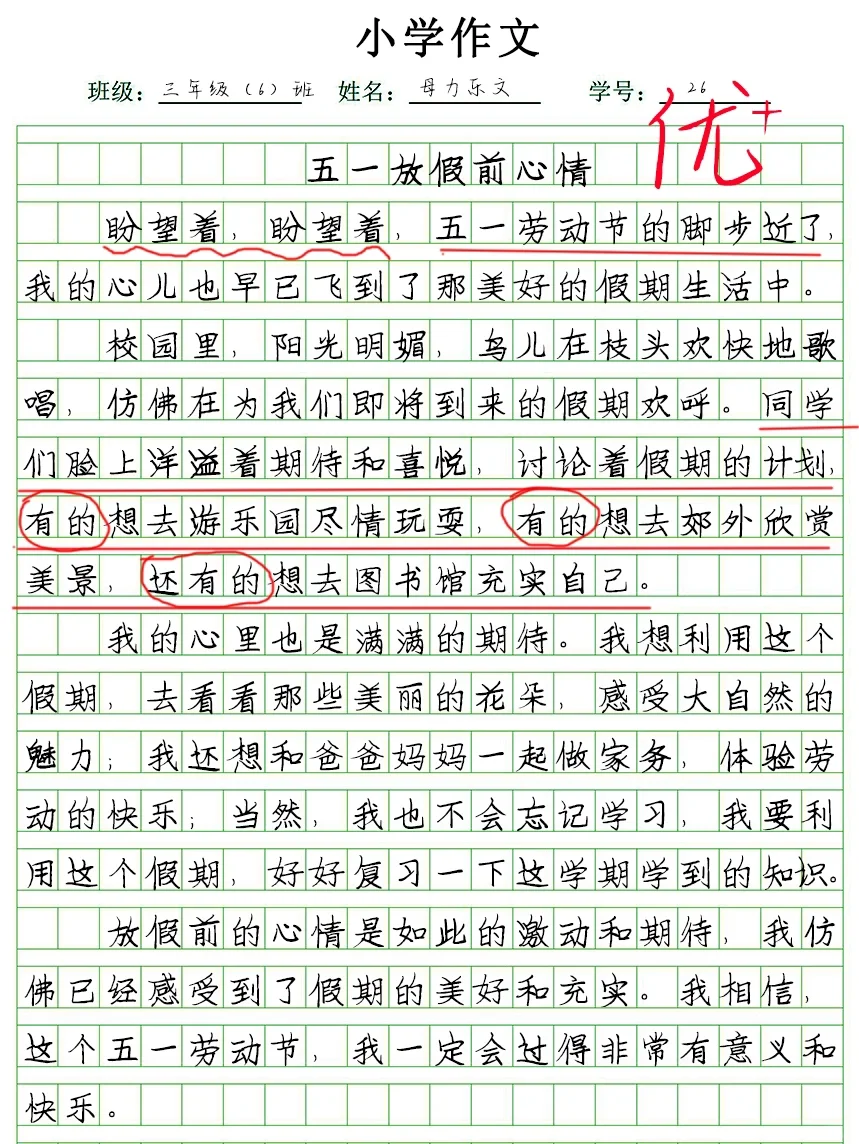 小学作文
班级：三年级（6）班 姓名：母力乐文 学号：26
优+
五一放假前心情
盼望着，盼望着，五一劳动节的脚步近了，
我的心儿也早已飞到了那美好的假期生活中。
校园里，阳光明媚，鸟儿在枝头欢快地歌
唱，仿佛在为我们即将到来的假期欢呼。同学
们脸上洋溢着期待和喜悦，讨论着假期的计划，
有的想去游乐园尽情玩耍，有的想去郊外欣赏
美景，还有的想去图书馆充实自己。
我的心里也是满满的期待。我想利用这个
假期，去看看那些美丽的花朵，感受大自然的
魅力；我还想和爸爸妈妈一起做家务，体验劳
动的快乐；当然，我也不会忘记学习，我要利
用这个假期，好好复习一下这学期学到的知识。
放假前的心情是如此的激动和期待，我仿
佛已经感受到了假期的美好和充实。我相信，
这个五一劳动节，我一定会过得非常有意义和
快乐。